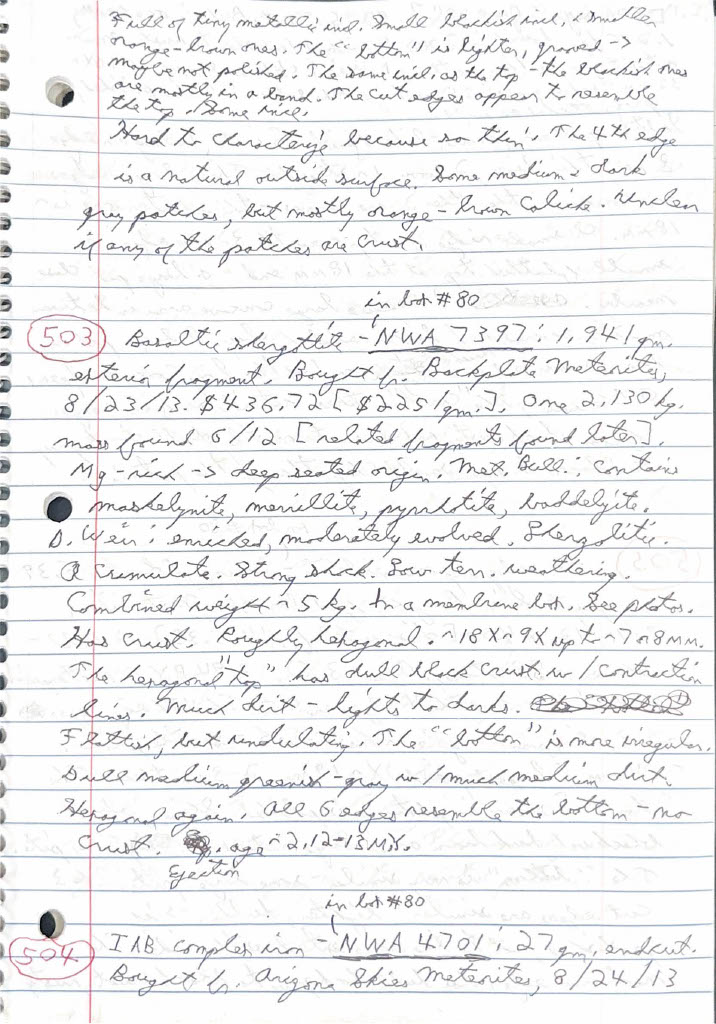 Full of tiny metallic incl. Small blackish incl, & smaller
orange-brown ones. The "bottom" is lighter, grooved ->
maybe not polished. The same incl. as the top - the blackish ones
are mostly in a band. The cut edges appear to resemble
the top. Some incl.
Hard to characterize because so thin. The 4th edge
is a natural outside surface. Some medium & dark
gray patches, but mostly orange-brown caliche. Unclear
if any of the patches are crust.
in box #80
503 Basaltic shergottite - NWA 7397: 1.941 gm.
exterior fragment. Bought fr. Backplate Meteorites,
8/23/13. $436.72 [$225/gm.]. One 2.130 kg.
mass found 6/12 [related fragments found later].
Mg-rich -> deep seated origin. Met. Bull.: contains
maskelynite, merrillite, pyrrhotite, baddelyite.
D. Weir: enriched, moderately evolved. Sherzolitic.
A cumulate. Strong shock. Low terr. weathering.
Combined weight ~ 5 kg. In a membrane box. See photos.
Has crust. Roughly hexagonal. ~18 X ~9 X up to ~7 or 8 MM.
The hexagonal "top" has dull black crust w/contraction
lines. Much dirt - lights to darks.
Flattish, but undulating. The "bottom" is more irregular.
Dull medium greenish-gray w/much medium dirt.
Hexagonal again. All 6 edges resemble the bottom - no
crust. age ~ 2.12-13 M.Y.
Ejection
in box #80
504 IAB complex iron - NWA 4701: 27 gm. endcut.
Bought fr. Arizona Skies Meteorites, 8/24/13